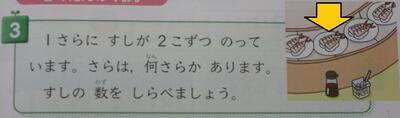 3
1さらに すしが 2こずつ のって
います。さらは,何さらか あります。
すしの 数を しらべましょう。